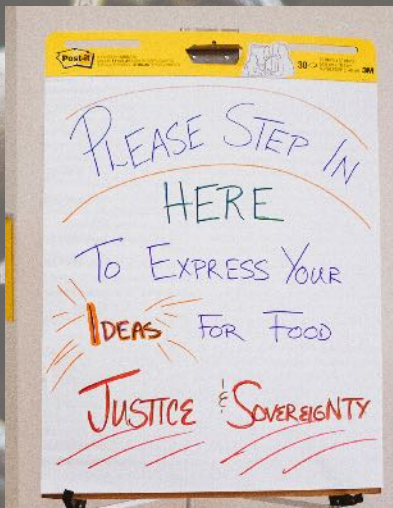 Post-it
30
3M
PLEASE STEP IN
HERE
TO EXPRESS YOUR
IDEAS FOR FOOD
JUSTICE & SOVEREIGNTY